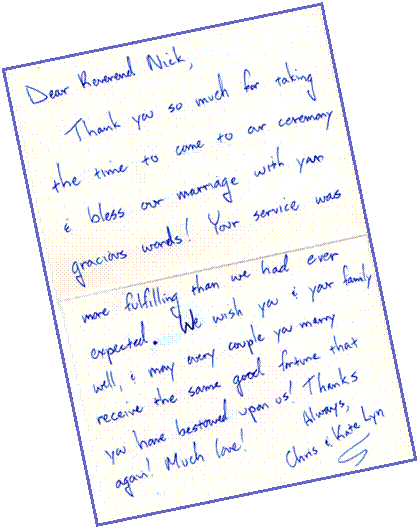 Dear Reverend Nick,
Thank you so much for taking
the time to come to our ceremony
& bless our marriage with your
gracious words! Your service was
more fulfilling than we had ever
expected. We wish you & your family
well, & may every couple you marry
receive the same good fortune that
you have bestowed upon us! Thanks
again! Much love!
Always,
Chris & Kate Lyn